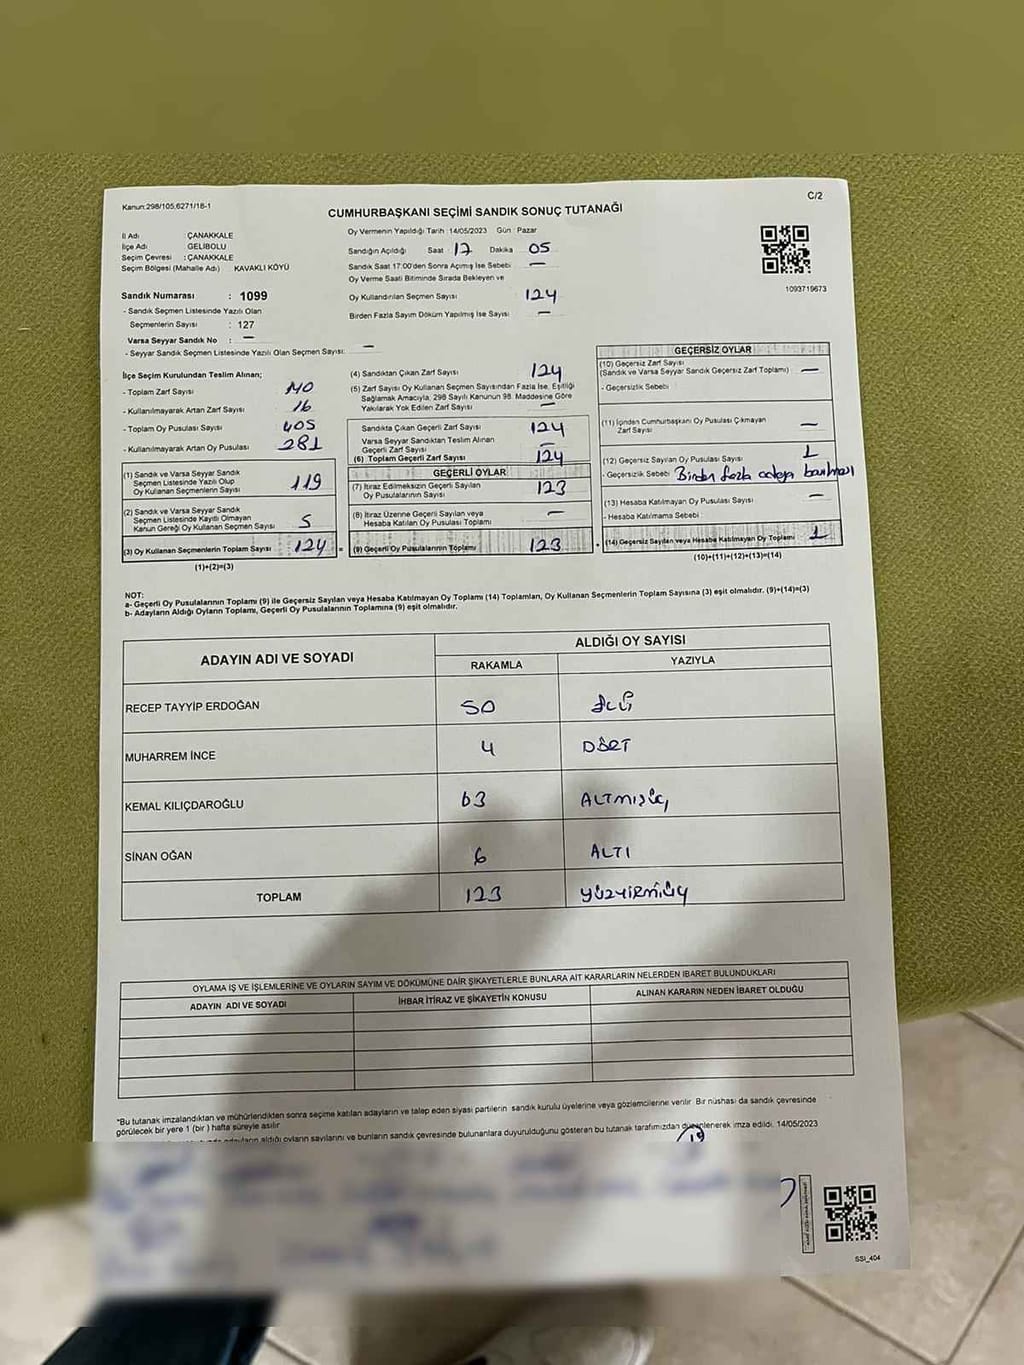 Kanun:298/105,6271/18-1
C/2
CUMHURBAŞKANI SEÇİMİ SANDIK SONUÇ TUTANAĞI
İl Adı : ÇANAKKALE
İlçe Adı : GELİBOLU
Seçim Çevresi : ÇANAKKALE
Seçim Bölgesi (Mahalle Adı) KAVAKLI KÖYÜ
Sandık Numarası : 1099
- Sandık Seçmen Listesinde Yazılı Olan
Seçmenlerin Sayısı : 127
Varsa Seyyar Sandık No : —
- Seyyar Sandık Seçmen Listesinde Yazılı Olan Seçmen Sayısı: —
Oy Vermenin Yapıldığı Tarih :14/05/2023 Gün : Pazar
Sandığın Açıldığı Saat 17 Dakika 05
Sandık Saat 17:00'den Sonra Açımış İse Sebebi —
Oy Verme Saati Bitiminde Sırada Bekleyen ve
Oy Kullandırılan Seçmen Sayısı 124
Birden Fazla Sayım Döküm Yapılmış İse Sayısı —
1093719673
İlçe Seçim Kurulundan Teslim Alınan;
- Toplam Zarf Sayısı 140
- Kullanılmayarak Artan Zarf Sayısı 16
- Toplam Oy Pusulası Sayısı 405
- Kullanılmayarak Artan Oy Pusulası 281
(1) Sandık ve Varsa Seyyar Sandık
Seçmen Listesinde Yazılı Olup
Oy Kullanan Seçmenlerin Sayısı 119
(2) Sandık ve Varsa Seyyar Sandık
Seçmen Listesinde Kayıtlı Olmayan
Kanun Gereği Oy Kullanan Seçmen Sayısı 5
(3) Oy Kullanan Seçmenlerin Toplam Sayısı 124
(1)+(2)=(3)
(4) Sandıktan Çıkan Zarf Sayısı 124
(5) Zarf Sayısı Oy Kullanan Seçmen Sayısından Fazla İse, Eşitliği
Sağlamak Amacıyla, 298 Sayılı Kanunun 98. Maddesine Göre
Yakılarak Yok Edilen Zarf Sayısı —
Sandıkta Çıkan Geçerli Zarf Sayısı 124
Varsa Seyyar Sandıktan Teslim Alınan
Geçerli Zarf Sayısı —
(6) Toplam Geçerli Zarf Sayısı 124
GEÇERLİ OYLAR
(7) İtiraz Edilmeksizin Geçerli Sayılan
Oy Pusulalarının Sayısı 123
(8) İtiraz Üzerine Geçerli Sayılan veya
Hesaba Katılan Oy Pusulası Toplamı —
= (9) Geçerli Oy Pusulalarının Toplamı 123
GEÇERSİZ OYLAR
(10) Geçersiz Zarf Sayısı
(Sandık ve Varsa Seyyar Sandık Geçersiz Zarf Toplamı) —
- Geçersizlik Sebebi
(11) İçinden Cumhurbaşkanı Oy Pusulası Çıkmayan
Zarf Sayısı —
(12) Geçersiz Sayılan Oy Pusulası Sayısı 1
- Geçersizlik Sebebi Birden fazla adaya basılması
(13) Hesaba Katılmayan Oy Pusulası Sayısı —
- Hesaba Katılmama Sebebi
+ (14) Geçersiz Sayılan veya Hesaba Katılmayan Oy Toplamı 1
(10)+(11)+(12)+(13)=(14)
NOT:
a- Geçerli Oy Pusulalarının Toplamı (9) ile Geçersiz Sayılan veya Hesaba Katılmayan Oy Toplamı (14) Toplamları, Oy Kullanan Seçmenlerin Toplam Sayısına (3) eşit olmalıdır. (9)+(14)=(3)
b- Adayların Aldığı Oyların Toplamı, Geçerli Oy Pusulalarının Toplamına (9) eşit olmalıdır.
ADAYIN ADI VE SOYADI ALDIĞI OY SAYISI
RAKAMLA YAZIYLA
RECEP TAYYİP ERDOĞAN 50
MUHARREM İNCE 4 DÖRT
KEMAL KILIÇDAROĞLU 63 ALTMIŞÜÇ
SİNAN OĞAN 6 ALTI
TOPLAM 123 YÜZYİRMİÜÇ
OYLAMA İŞ VE İŞLEMLERİNE VE OYLARIN SAYIM VE DÖKÜMÜNE DAİR ŞİKAYETLERLE BUNLARA AİT KARARLARIN NELERDEN İBARET BULUNDUKLARI
ADAYIN ADI VE SOYADI İHBAR İTİRAZ VE ŞİKAYETİN KONUSU ALINAN KARARIN NEDEN İBARET OLDUĞU
*Bu tutanak imzalandıktan ve mühürlendikten sonra seçime katılan adayların ve talep eden siyasi partilerin sandık kurulu üyelerine veya gözlemcilerine verilir. Bir nüshası da sandık çevresinde
görülecek bir yere 1 (bir) hafta süreyle asılır
aldığı oyların sayılarını ve bunların sandık çevresinde bulunanlara duyurulduğunu gösteren bu tutanak tarafımızdan düzenlenerek imza edildi. 14/05/2023
19
SSI_404